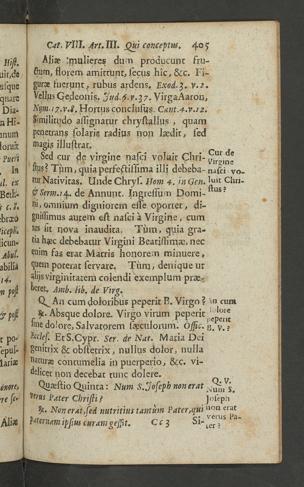 Cat. VIII. Art. III. Qui conceptus. 405
Aliæ mulieres dum producunt fru-
ctum, florem amittunt, secus hic, &c. Fi-
guræ fuerunt, rubus ardens, Exod. 3. v. 2.
Vellus Gedeonis, Jud. 6. v. 37. Virga Aaron,
Num. 17. v. 8. Hortus conclusus Cant. 4. v. 12.
Similitudo assignatur chrystallus, quam
penetrans solaris radius non lædit, sed
magis illustrat.
Sed cur de virgine nasci voluit Chri-
stus? Tùm, quia perfectissima illi debeba-
tur Nativitas. Unde Chrys. Hom. 4. in Gen.
& Serm. 14. de Annunt. Ingressum Domi-
ni, omnium digniorem esse oportet, di-
gnissimus autem est nasci à Virgine, cum
sit nova inaudita. Tùm, quia gra-
tia hæc debebatur Virgini Beatissimæ: nec
enim fas erat Matris honorem minuere,
quem poterat servare. Tùm, denique ut
aliis virginitatem colendi exemplum præ-
beret. Amb. lib. de Virg.
Q. An cum doloribus peperit B. Virgo?
℟. Absque dolore. Virgo virum peperit
sine dolore, Salvatorem sæculorum. Offic.
Eccles. Et S. Cypr. Ser. de Nat. Matia Dei
genitrix & obstetrix, nullus dolor, nulla
naturæ contumelia in puerperio, &c. vi-
delicet non decebat tunc dolere.
Quæstio Quinta: Num S. Joseph non erat
verus Pater Christi?
℟. Non erat, sed nutritius tantùm Pater, qui
paternam ipsius curam gessit. Cc 3 Si-
Cur de
Virgine
nasci vo-
luit Chri-
stus?
An cum
dolore
peperit
B. V.?
Q. V.
Num S.
Joseph
non erat
verus Pa-
ter?